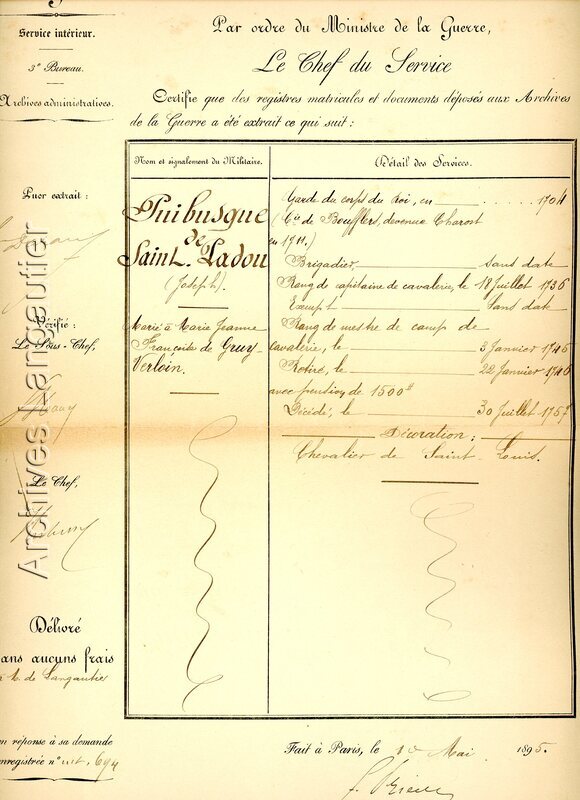 Service intérieur.
3e Bureau.
Archives administratives.
Par ordre du Ministre de la Guerre,
Le Chef du Service
Certifie que des registres matricules et documents déposés aux Archives
de la Guerre a été extrait ce qui suit :
Pour extrait :
Vérifié :
Le Sous-Chef,
Le Chef,
Délivré
sans aucuns frais
à M. de Langautier
en réponse à sa demande
enregistrée n°
Nom et signalement du Militaire.
Puibusque
de
Saint-Ladou
(Joseph).
Marié à Marie Jeanne
Françoise de Gruy-
Verloin.
Détail des Services.
Garde du corps du Roi, en 1704
(Cie de Boufflers, devenue Charost
en 1711.)
Brigadier, sans date
Rang de capitaine de cavalerie, le 18 Juillet 1736
Exempt Sans date
Rang de mestre de camp de
cavalerie, le 3 Janvier 1746
Retiré, le 22 Janvier 1746
avec pension de 1500#
Décédé, le 30 Juillet 1757
Décoration :
Chevalier de Saint-Louis.
Fait à Paris, le Mai 1895.
Archives Langautier